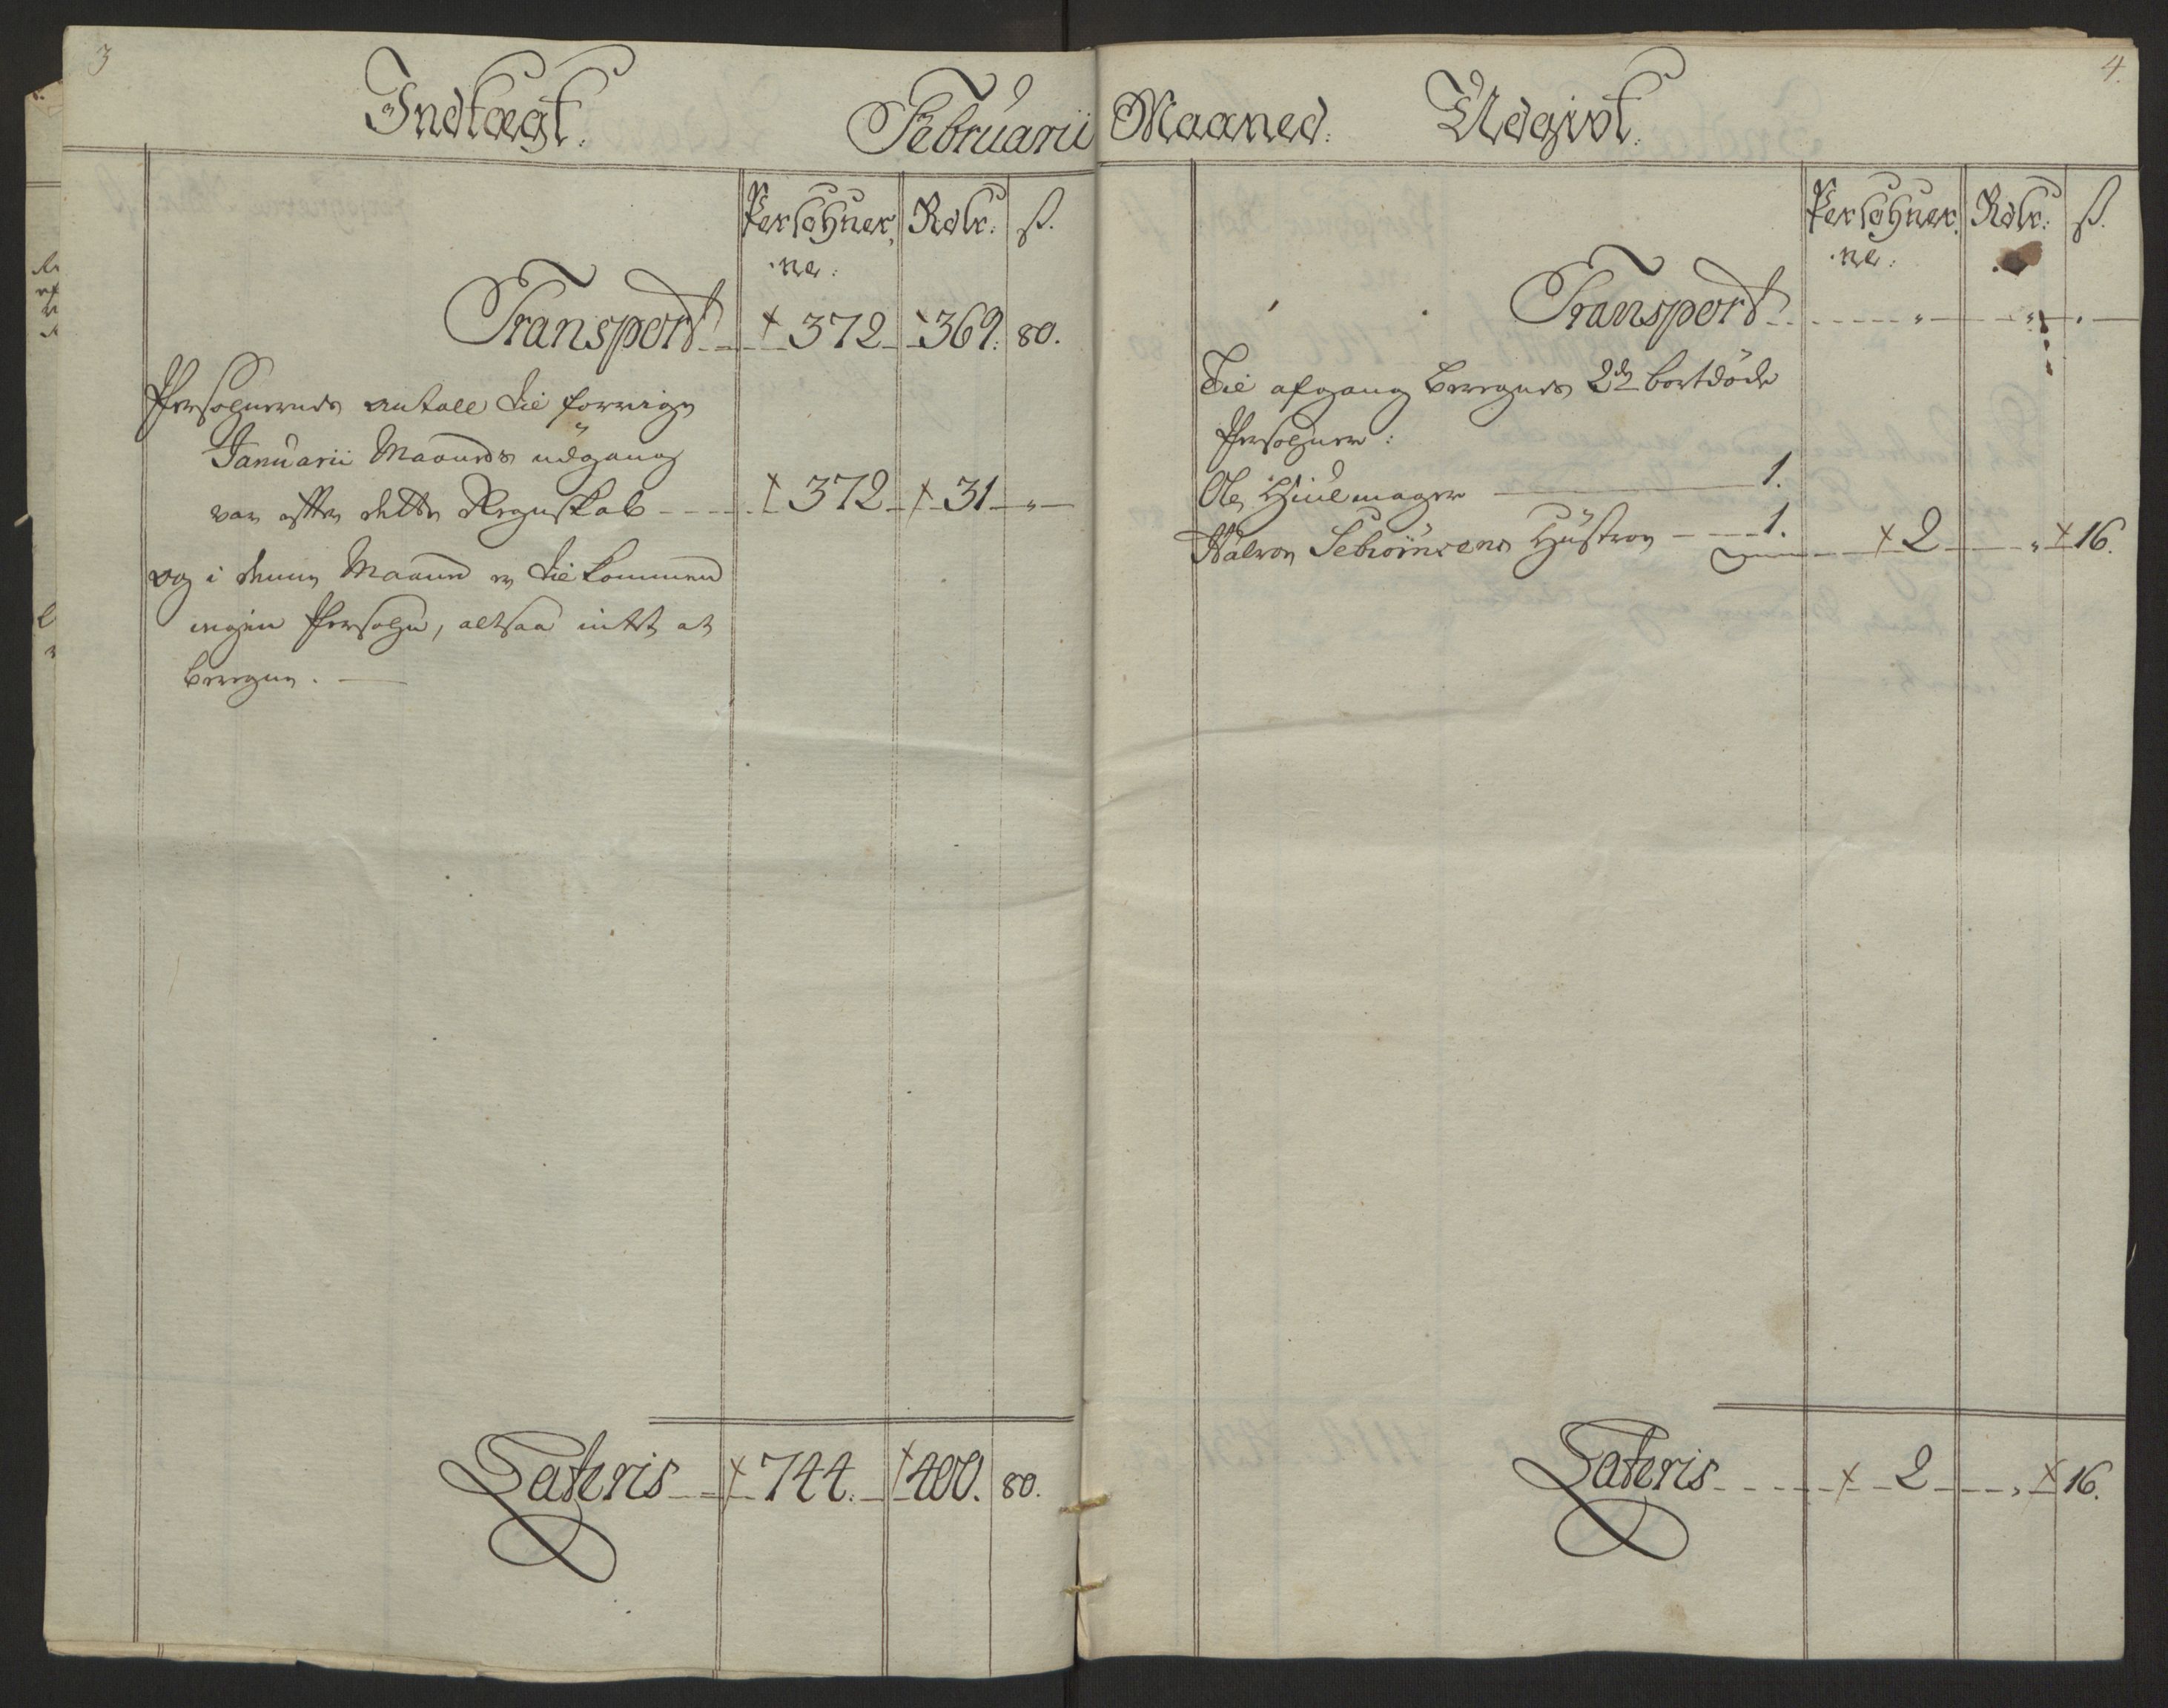 3
Indtægt.
Februarii
Persohner
Rdlr:
ß.
ne:
Transport
372
369.
80.
Persohnernes antall til forrige
Januarii Maaneds udgang
var efter dette Regnskab
372
31
"
og i denne Maaned er tilkommen
ingen Persohn, altsaa intet at
beregne.
Lateris
744.
400.
80.
4.
Maaned:
Udgivt:
Persohner
Rdlr:
ß.
ne:
Transport
"
"
"
Til afgang beregnes 2de bortdöde
Persohner:
Ole Hiulmager
1.
Halvor Huustroe
1.
2
"
16.
Lateris
2
"
16.